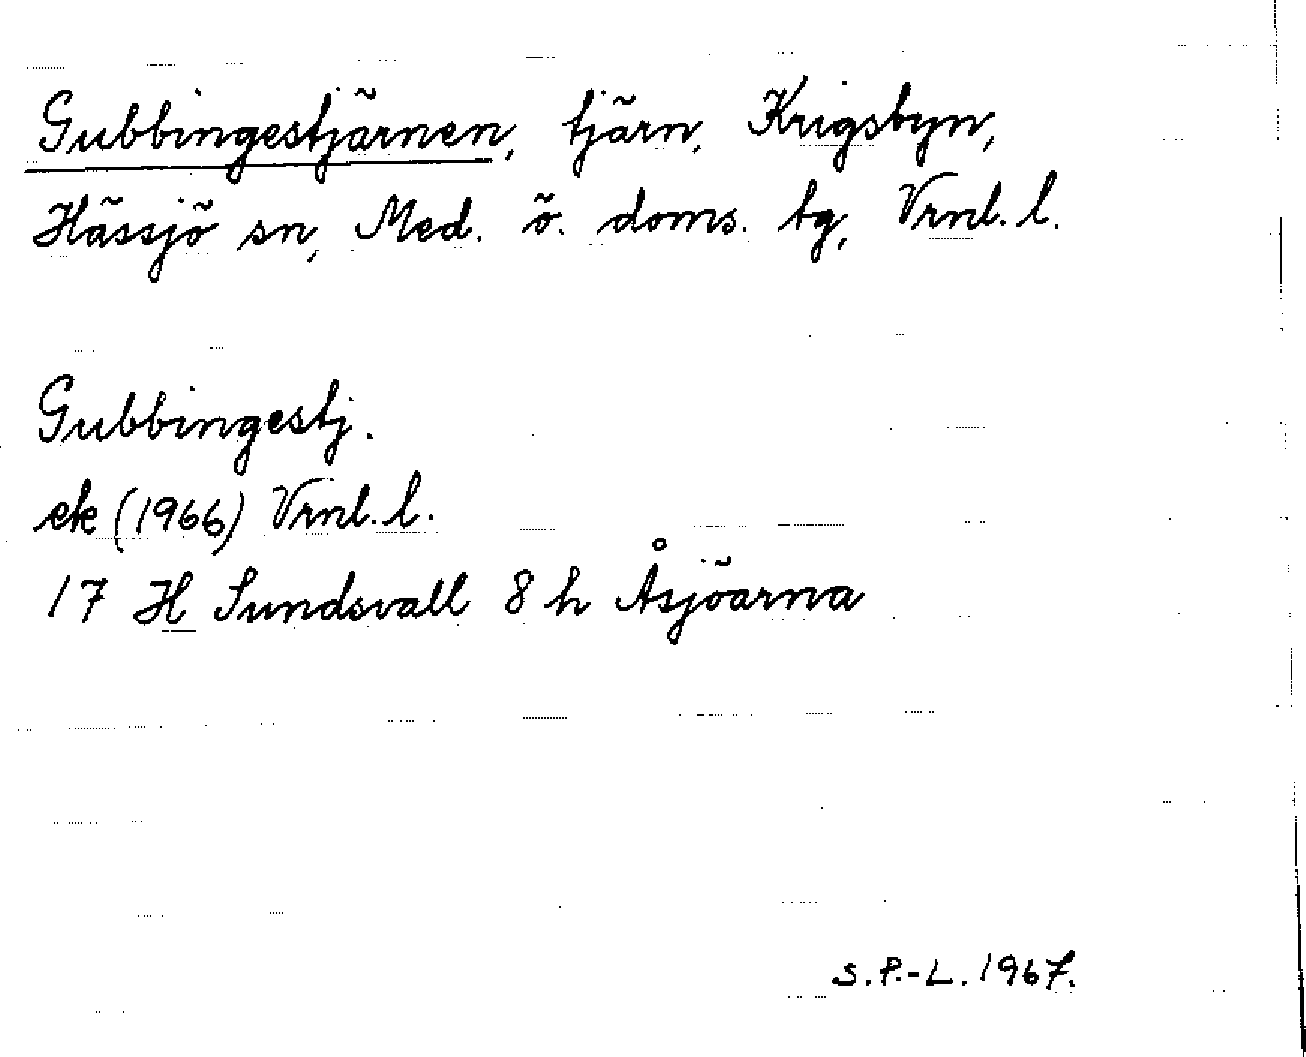 Gubbingestjärnen, tjärn, Krigsbyn,
Hässjö sn, Med. ö. doms. tg, Vrnl. l.
Gubbingestj.
ek (1966) Vrnl. l.
17 H Sundsvall 8 h Åsjöarna
S.P.-L. 1967.